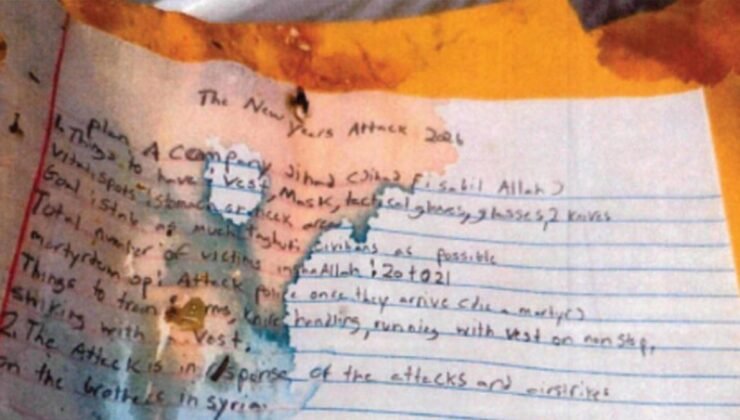 The New Years Attack 2026
Plan A Company Jihad (Jihad Fi sabil Allah)
1. Things to have: vest, Mask, tactical gloves, glasses, 2 knives
vital spots stomach or neck area
Goal: stab as much taghuti civilians as possible
Total number of victims inshaAllah: 20 to 21
martyrdom op: Attack police once they arrive (die a martyr)
Things to train: arms, knife handling, running with vest on non stop,
striking with Vest,
2. The Attack is in response of the attacks and airstrikes
on the brothers in syria.